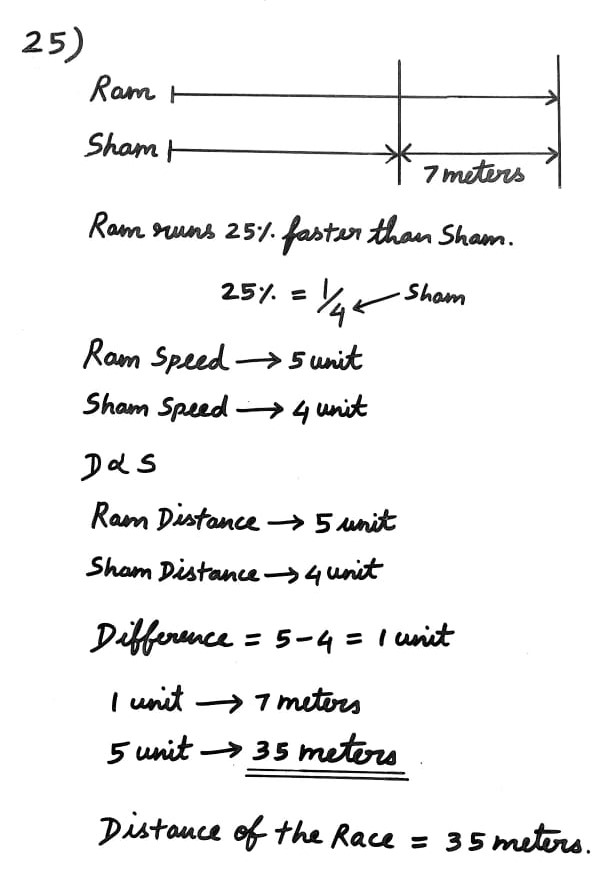 25)
Ram
Sham
7 meters
Ram runs 25% faster than Sham.
25% = 1/4 ← Sham
Ram Speed → 5 unit
Sham Speed → 4 unit
D α S
Ram Distance → 5 unit
Sham Distance → 4 unit
Difference = 5-4 = 1 unit
1 unit → 7 meters
5 unit → 35 meters
Distance of the Race = 35 meters.